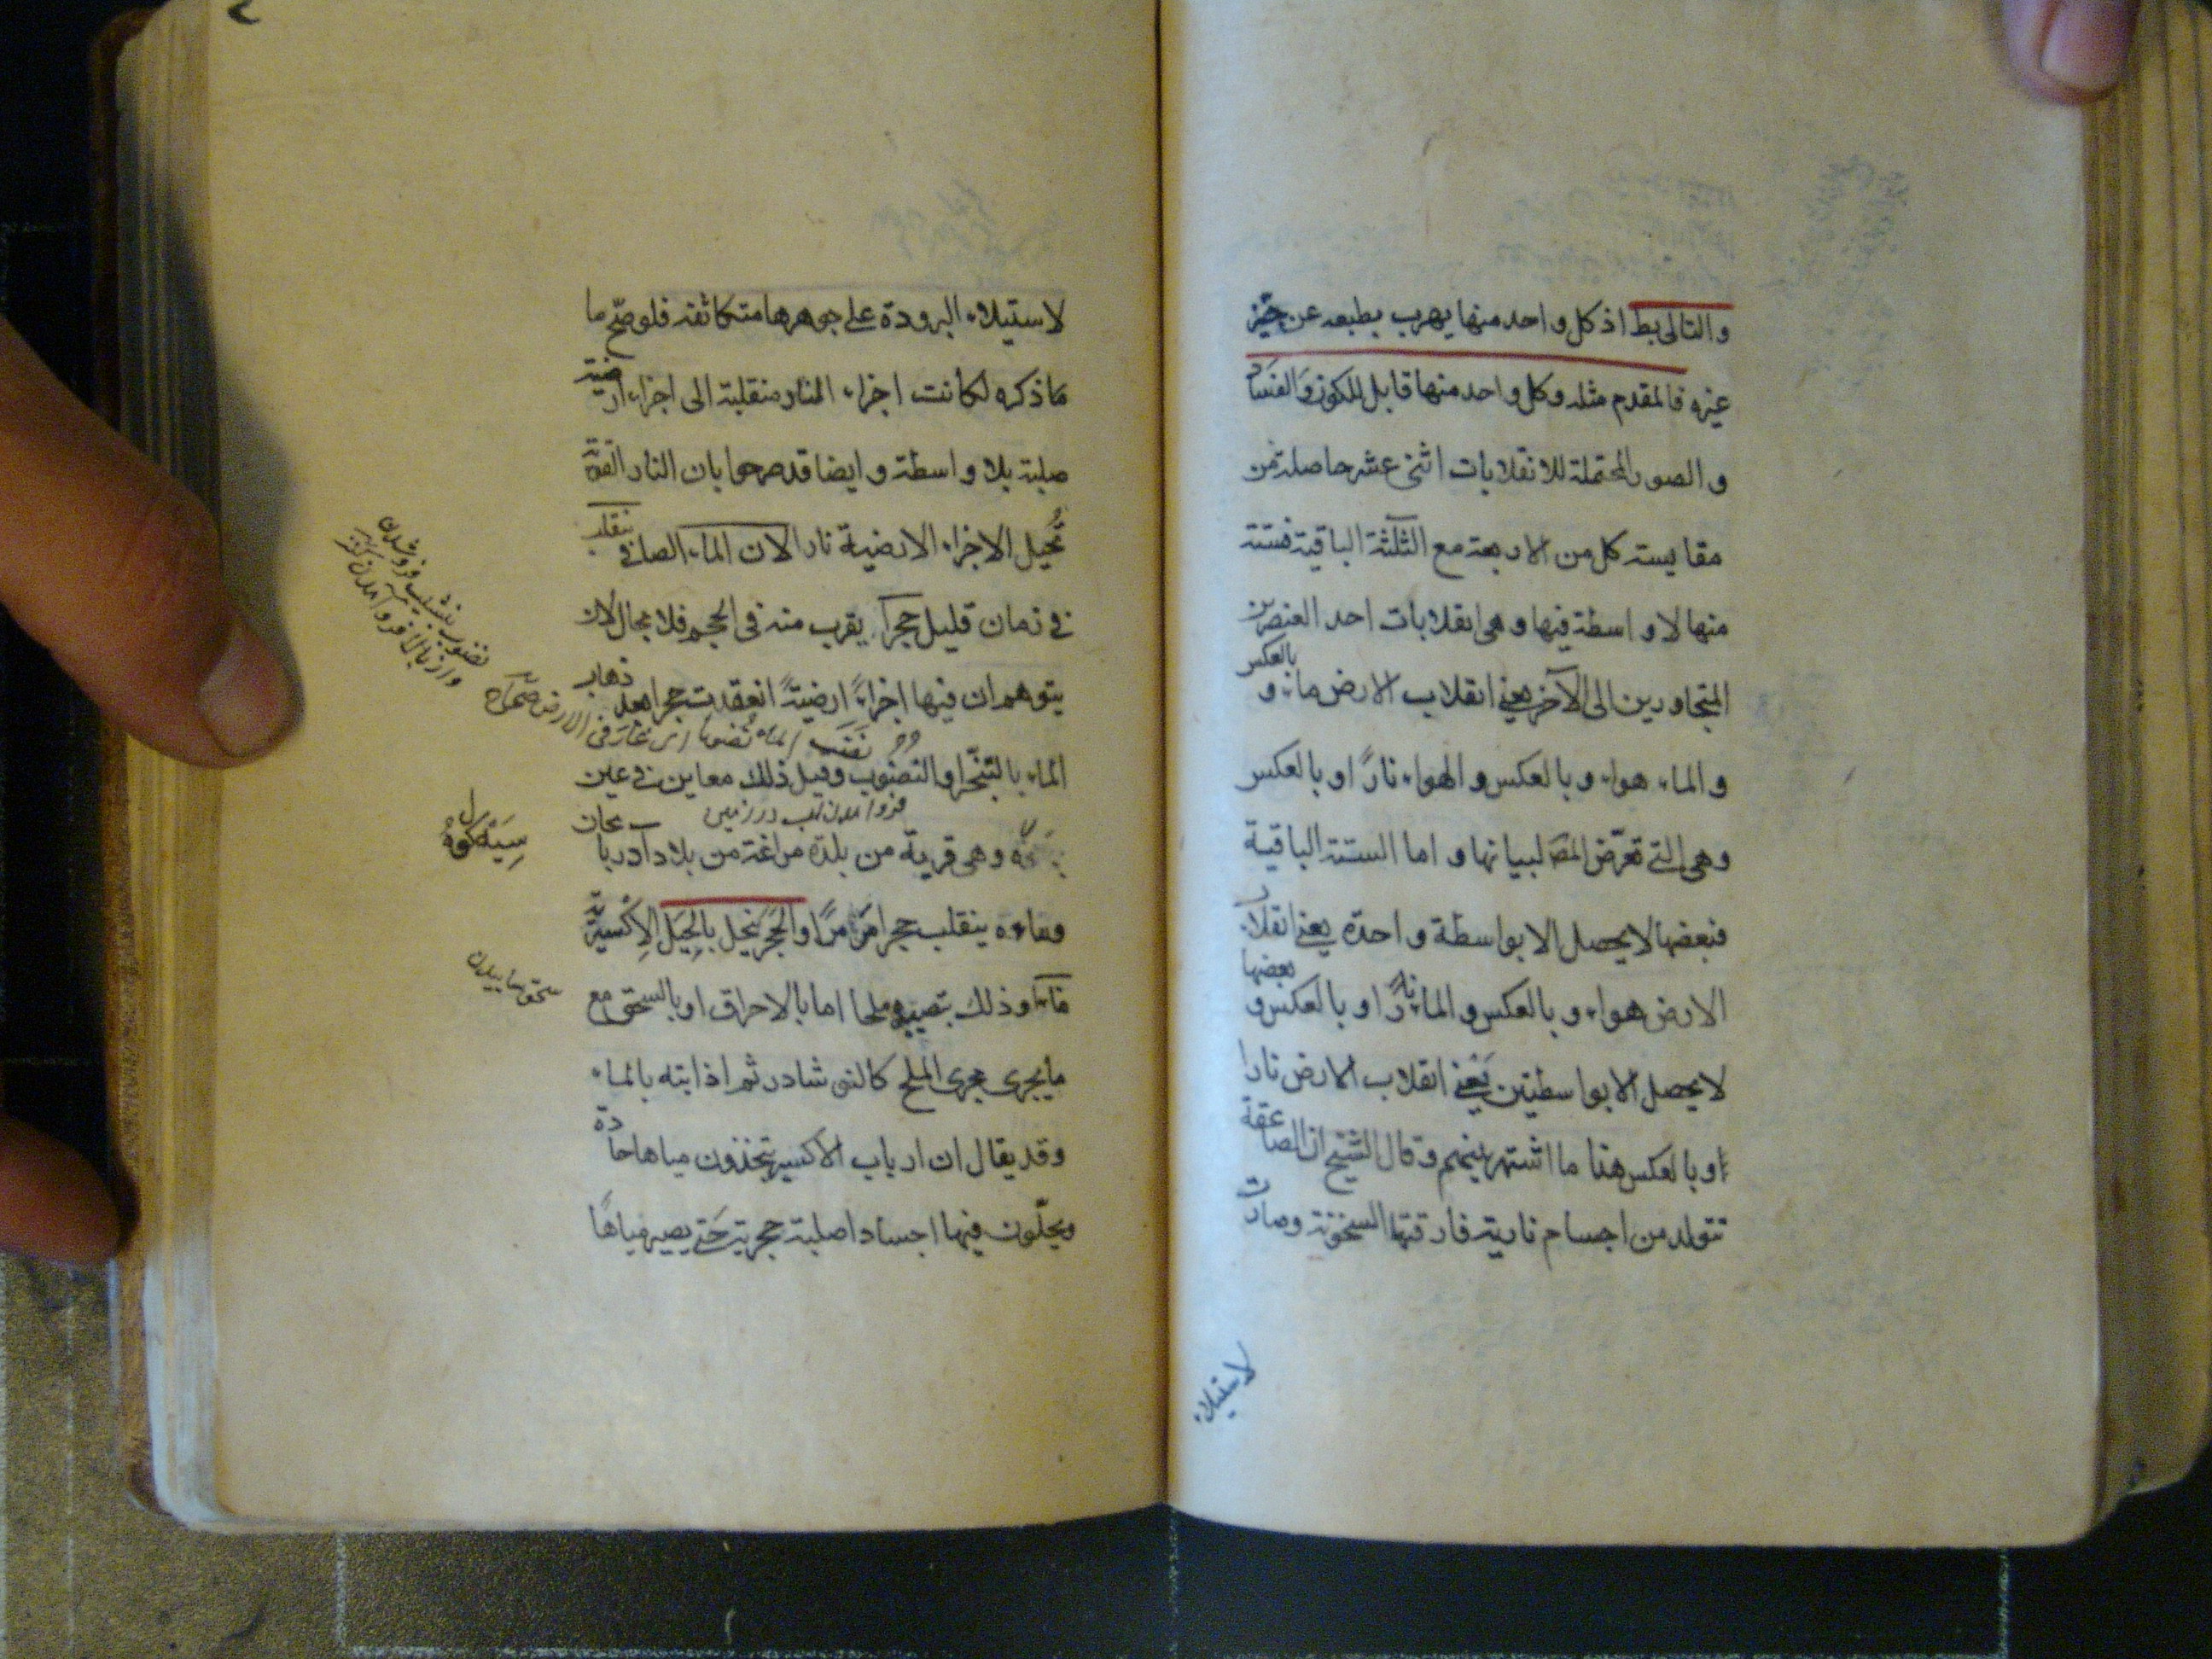 والتالى بط اذ كل واحد منها يهرب بطبعه عن حيّز
غيره فالمقدم مثله وكل واحد منها قابل للكون والفساد
والصور المحتملة للانقلابات اثنى عشر حاصلة من
مقايسة كل من الاربعة مع الثلثة الباقية فستة
منها لا واسطة فيها وهى انقلابات احد العنصرين
المتجاورين الى الآخر يعنى انقلاب الارض ماء و بالعكس
والماء هواء وبالعكس والهواء نارًا وبالعكس
وهى التى تعرّض المص لبيانها واما الستة الباقية
فبعضها لا يحصل الا بواسطة واحدة يعنى انقلاب
الارض هواء وبالعكس والماء نارًا وبالعكس و بعضها
لا يحصل الا بواسطتين يعنى انقلاب الارض نارا
او بالعكس هذا ما اشتهر بينهم وقال الشيخ ان الصاعقة
تتولد من اجسام نارية فارقتها السخونة وصارت
لاستيلاء
لاستيلاء البرودة على جوهرها متكاثفة فلو صحّ ما
ما ذكره لكانت اجزاء النار منقلبة الى اجزاء ارضية
صلبة بلا واسطة وايضا قد صرحوا بان النار القوية
تُحيل الاجزاء الارضية نارا لان الماء الصافى ينقلب
فى زمان قليل حجرا يقرب منه فى الحجم فلا مجال لان
يتوهم ان فيها اجزاءً ارضيةً انعقدت حجرا بعد ذهاب
نضب الماء نضوبا اى غار فى الارض صحاح
الماء بالتبخّر او النضوب وقيل ذلك معاين فى عين
فرو آمدن آب در زمين
وهى قرية من بلدة مراغة من بلاد آذربايجان
سيه كوه
وماءه ينقلب حجرا مرمرًا والحجر يُحيل بالحِيَل الاِكْسيرية
ماءً وذلك بتصييره ملحا اما بالاحراق او بالسحق مع
سحق ساييدن
ما يجرى مجرى الملح كالنوشادر ثم اذابته بالماء
وقد يقال ان ارباب الاكسير يتخذون مياها حادة
ويحلّون فيها اجسادا صلبة حجرية حتى يصير مياهًا